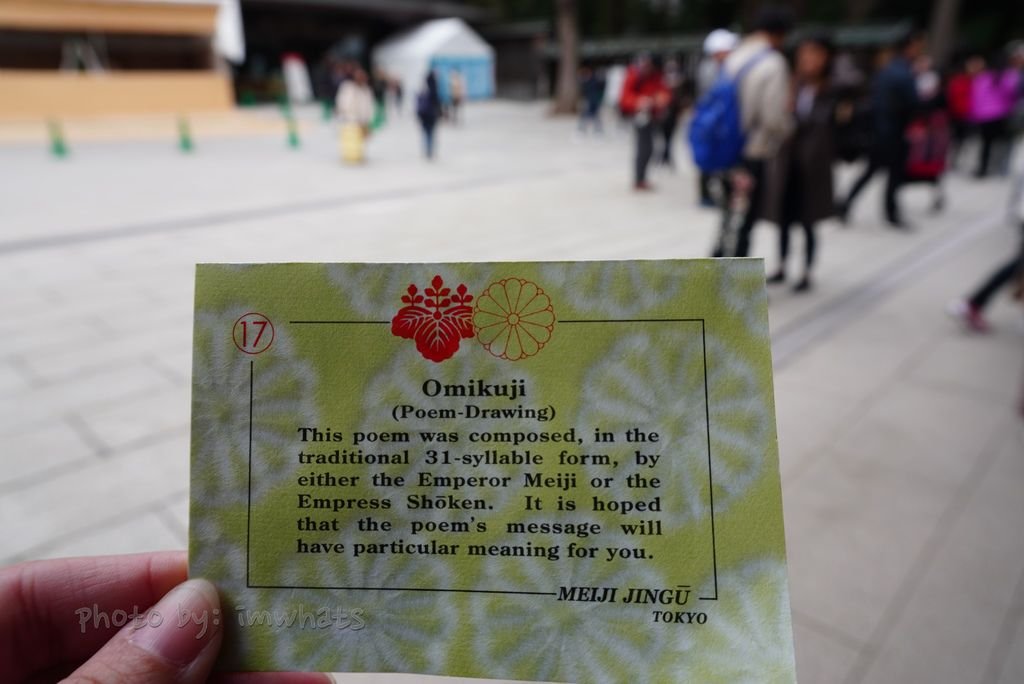 17
Omikuji
(Poem-Drawing)
This poem was composed, in the
traditional 31-syllable form, by
either the Emperor Meiji or the
Empress Shōken. It is hoped
that the poem's message will
have particular meaning for you.
MEIJI JINGŪ
TOKYO
Photo by: imwhats